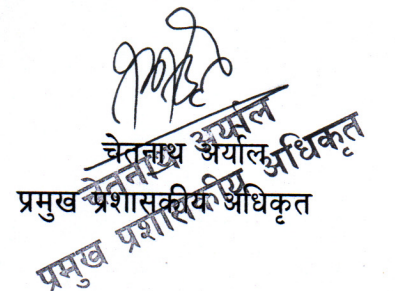 चेतनाथ अर्याल
प्रमुख प्रशासकीय अधिकृत
चेतनाथ अर्याल
प्रमुख प्रशासकीय अधिकृत